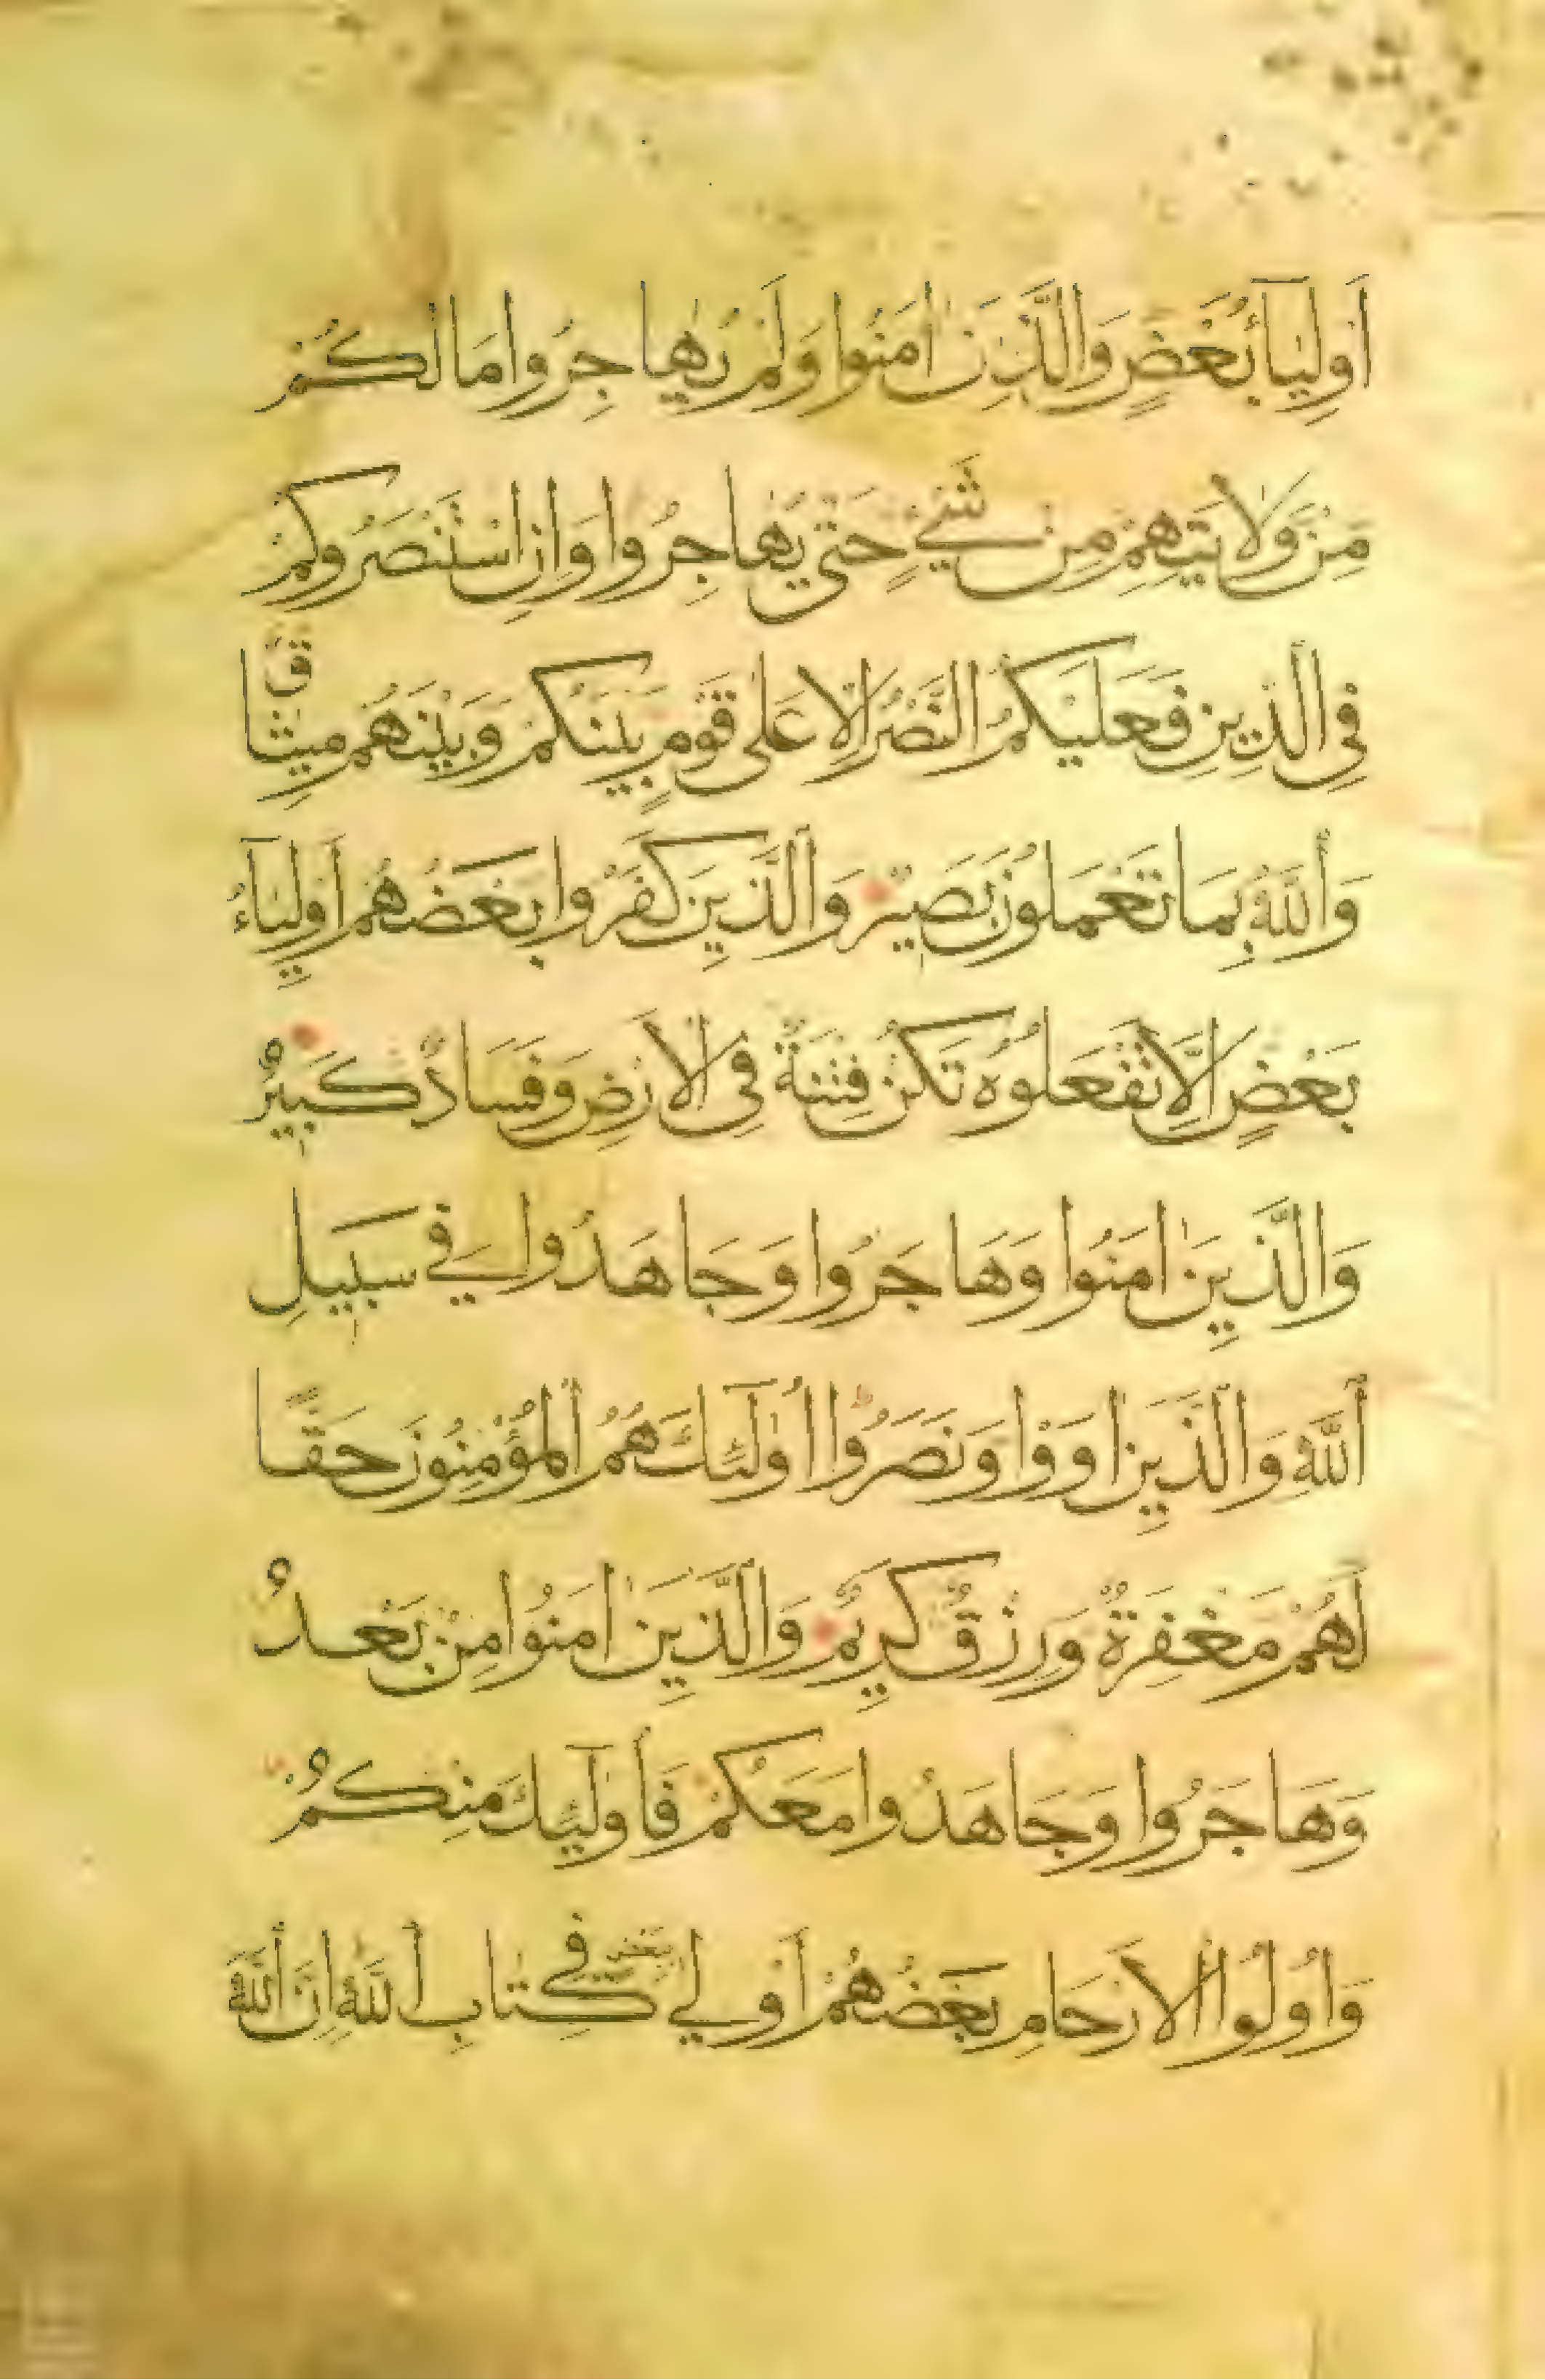 أَوْلِيَآءُ بَعْضٍ وَالَّذِينَ اٰمَنُوا وَلَمْ يُهَاجِرُوا مَا لَكُمْ
مِنْ وَلَايَتِهِمْ مِنْ شَيْءٍ حَتّٰى يُهَاجِرُوا وَاِنِ اسْتَنْصَرُوكُمْ
فِي الدِّينِ فَعَلَيْكُمُ النَّصْرُ اِلَّا عَلٰى قَوْمٍ بَيْنَكُمْ وَبَيْنَهُمْ مِيثَاقٌ
وَاللّٰهُ بِمَا تَعْمَلُونَ بَصِيرٌ وَالَّذِينَ كَفَرُوا بَعْضُهُمْ أَوْلِيَآءُ
بَعْضٍ اِلَّا تَفْعَلُوهُ تَكُنْ فِتْنَةٌ فِي الْاَرْضِ وَفَسَادٌ كَبِيرٌ
وَالَّذِينَ اٰمَنُوا وَهَاجَرُوا وَجَاهَدُوا فِي سَبِيلِ
اللّٰهِ وَالَّذِينَ اٰوَوْا وَنَصَرُوا أُولٰٓئِكَ هُمُ الْمُؤْمِنُونَ حَقًّا
لَهُمْ مَغْفِرَةٌ وَرِزْقٌ كَرِيمٌ وَالَّذِينَ اٰمَنُوا مِنْ بَعْدُ
وَهَاجَرُوا وَجَاهَدُوا مَعَكُمْ فَأُولٰٓئِكَ مِنْكُمْ
وَاُولُوا الْاَرْحَامِ بَعْضُهُمْ أَوْلٰي بِبَعْضٍ فِي كِتَابِ اللّٰهِ اِنَّ اللّٰهَ